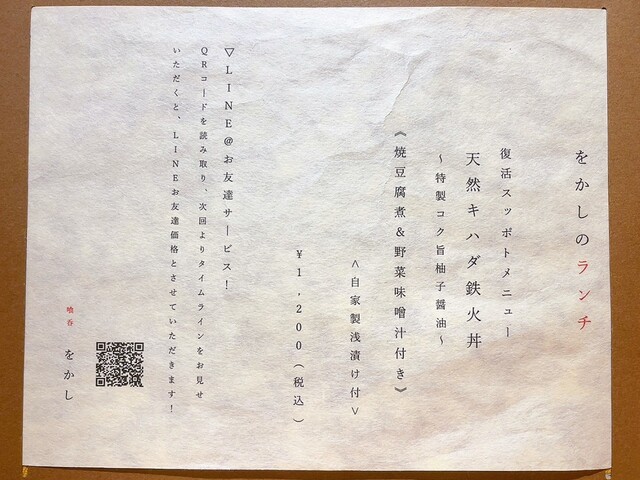 をかしのランチ
復活スッポトメニュー
天然キハダ鉄火丼
～特製コク旨柚子醤油～
《焼豆腐煮&野菜味噌汁付き》
<自家製浅漬け付>
¥1,200(税込)
▽LINE@お友達サービス!
QRコードを読み取り、次回よりタイムラインをお見せ
いただくと、LINEお友達価格とさせていただきます!
喰呑
をかし